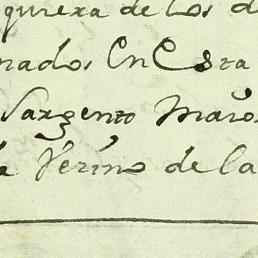 quiexa de los d
nados En Esta
Sargento Maro
Verino de la